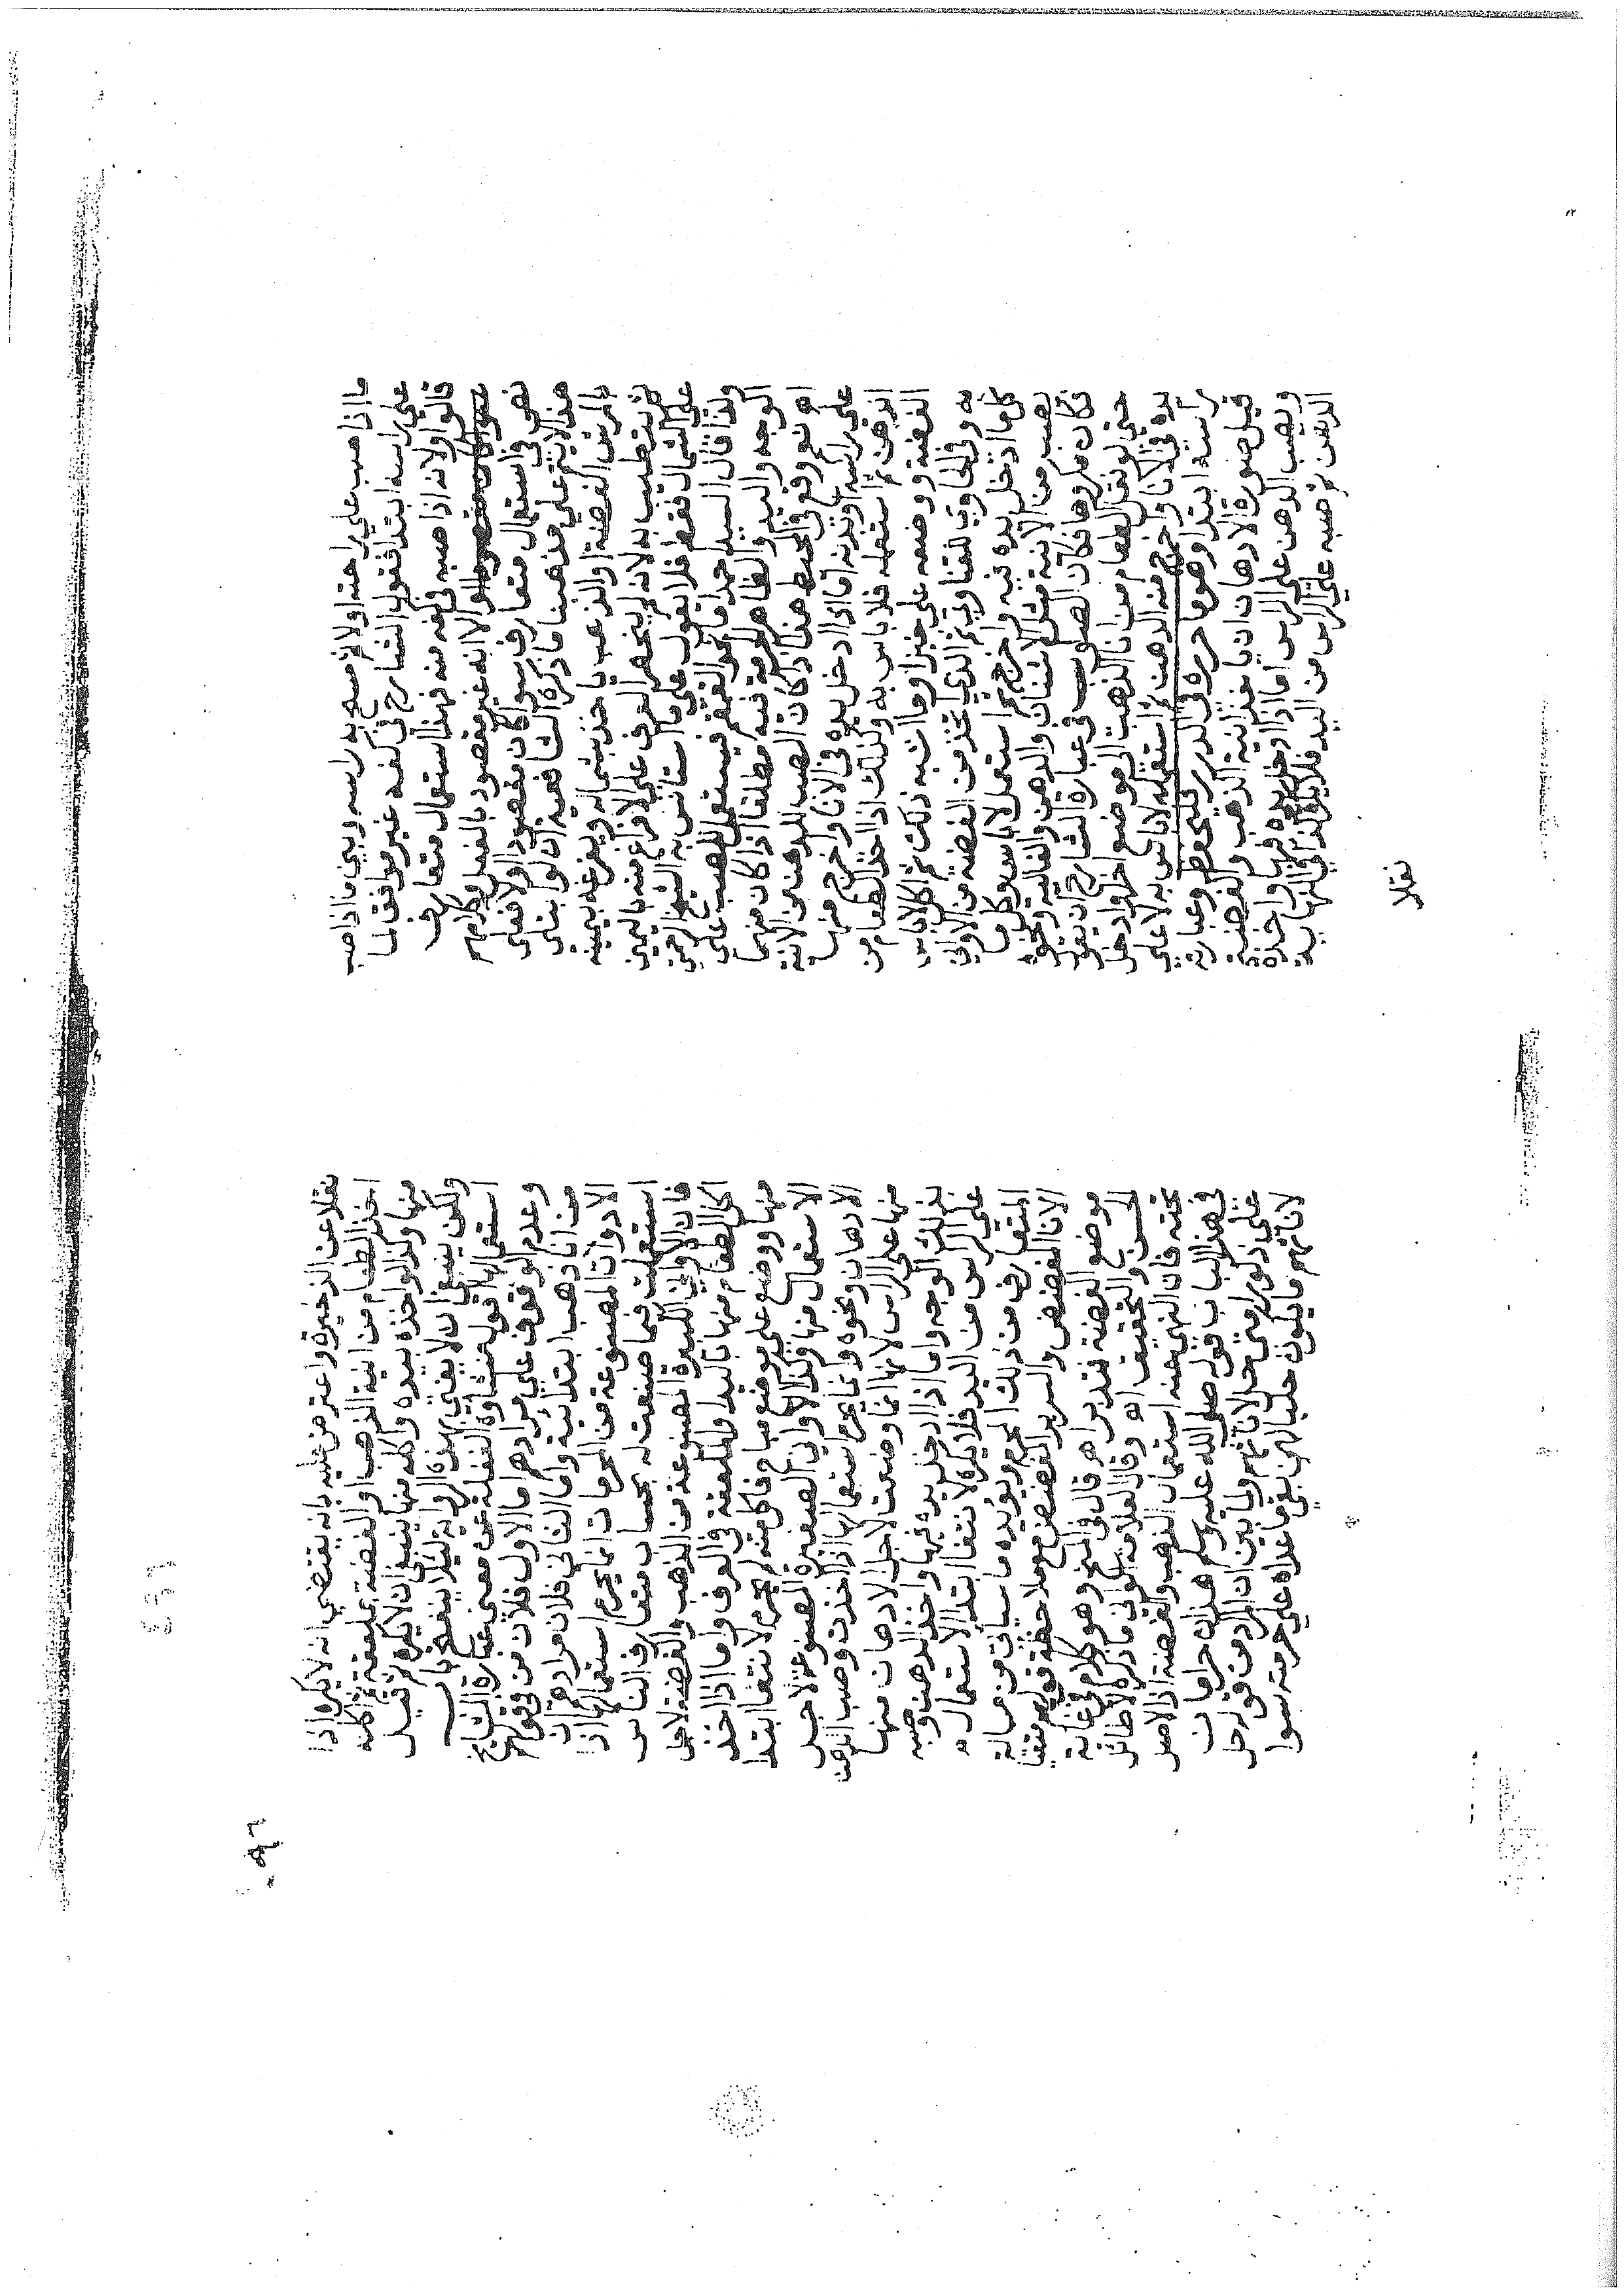 ما اذا صب على راحته اولا ثم مسح به راسه وبين ما اذا صب
على راسه ابتدا فقول الشارح في كفه غير موافق لما
قالوا ولانه اذا صبه في كفه منه فهذا استعمال متعارف
الا انه غير مقصود بالفعل وكلامهم
نص في استعمال متعارف سوا كان مقصودا اولا فعلى
هذا لا يتم على مذهبنا ما ذكره الشافعية ان لو ابتلي
بالمرش الفضة او الذهب ياخذ بشماله ويفرغه بيمينه
ثم يتطيب به لانه لم ينحصر العرف على الافراغ منه باليمين
على الشمال فقط فلا يعول على ما استانس به الشيخ الرحمتي
ولذا قال السيد احمد اما نحو القمقم فيستعمل للصب على
الوجه واليد والظاهر الحرمة فيه مطلقا اذا كان منهما
اه نعم وقع في المحيط هذا اذا كان الصب للدهن من الانية
على راسه او بدنه اما اذا ادخل يده في الانا واخرج منها
الدهن ثم استعمله فلا باس به وكذلك اذا اخذ الطعام من
القصعة ووضعه على خبز او ما اشبه ذلك ثم اكل لا باس
به وفي الحاوي للفتاوي ثم الذي اتخذ من الفضة من الاواني
كلما ادخل يده فيه واخرج ثم استعمل لا باس وكل ما
يصب من الانية مثل الاشنان والدهن والغالية ونحوه
فكان مكروها فكان الصواب في عبارة الشارح ان يقول
حتى لو نقل الطعام من انا الذهب الى موضع اخر او ادخل
يده في الانا واخرج منه الدهن ثم استعمله لا باس به لا على
راسه ابتدا وهو ما حرره في الدرر فليحفظ وعبارته
قيل صورة الادهان ان ياخذ انية الذهب والفضة
ويصب الدهن على الراس اما اذا ادخل يده فيها واخذ
الدهن ثم صبه على الراس من اليد فلا يكره كذا في النهاية
نقلا
نقلا عن الذخيرة واعترض عليه بانه يقتضي انه لا يكره اذا
اخذ الطعام من انية الذهب او الفضة بملعقة ثم اكله
منها وكذا لو اخذه بيده واكله منها ينبغي ان لا يكره ثم قيل
ولكن ينبغي ان لا يفتى بهذه الرواية ليلا ينفتح باب
استعمالها اقول منشاوه الغفلة عن معنى عبارة المشايخ
وعدم الوقوف على مرادهم اما الاول فلان من في قولهم
من انا ذهب ابتدائية واما الثاني فلان مرادهم ان
الادوات المصنوعة من المحرمات انما يحرم استعمالها اذا
استعملت فيما صنعت له بحسب متعارف الناس
فان الاواني الكبيرة المصنوعة من الذهب والفضة لاجل
اكل الطعام منها باليد او الملعقة في العرف واما اذا اخذ
منها ووضع على موضع مباح فاكل منه لم يحرم لانتفا ابتدا
الاستعمال منها وكذا الاواني الصغيرة المصنوعة لاجل
الادهان ونحوه وانما يحرم استعمالها اذا اخذت وصب الدهن
منها على الراس لانها انما وضعت لاجل الادهان منها
بذلك الوجه واما اذا ادخل يده فيها واخذ الدهن وصبه
على الراس من اليد فلا يكره لانتفا ابتدا الاستعمال
المتعارف من ذلك المحرم ويؤيده ما سياتي من مسالة
الانا المفضض والسرير المفضض مع ملاحظة قولهم متقيا
موضع الفضة فتدبر اه قال في المنح وهو كلام في غاية
الحسن والتحقيق اه وقال العلامة الواني ما ذكره لا طائل
تحته فان النهي عنه استعمال الذهب والفضة اذ الاصل
في هذا الباب قوله صلى الله عليه وسلم هذان حرامان
على ذكور امتي حل لاناثهم ولما بين ان المراد من قوله حل
لاناثهم ما يكون حليا لهن بقي ما عداه على حرمته سوا